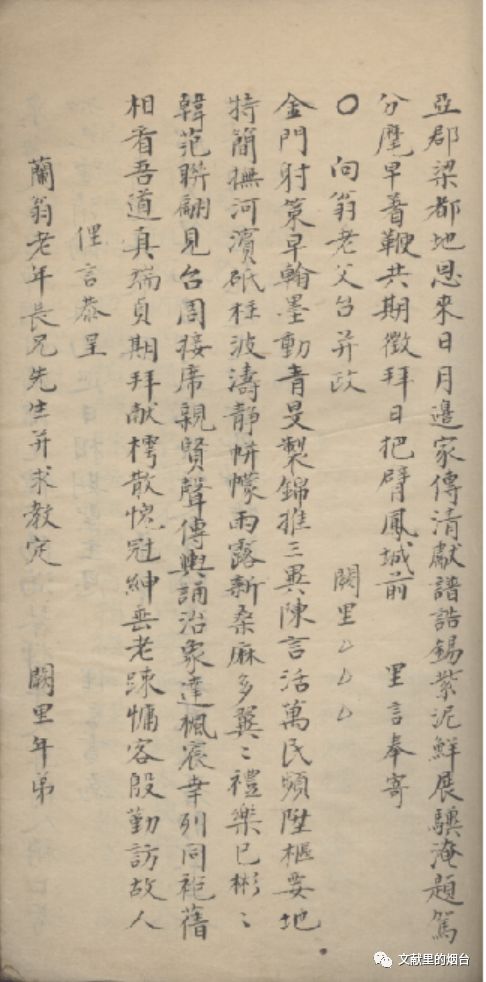 亞郡梁都地恩來日月邊家傳清獻譜誥錫紫泥鮮展驥淹題鳶
分麾早着鞭共期徵拜日把臂鳳城前　里言奉寄
〇　向翁老父台并政　闕里厶厶厶
金門射策早翰墨動青旻製錦推三異陳言活萬民頻陞樞要地
特簡撫河濱砥柱波濤靜帡幪雨露新桑麻多冀〻禮樂已彬〻
韓范聯翩見台周接席親賢聲傳輿誦治象達楓宸幸列同袍舊
相看吾道真瑞貞期拜献樗散愧冠紳垂老踈慵客殷勤訪故人
俚言恭呈
蘭翁老年長兄先生并求教定　闕里年弟
文献里的烟台